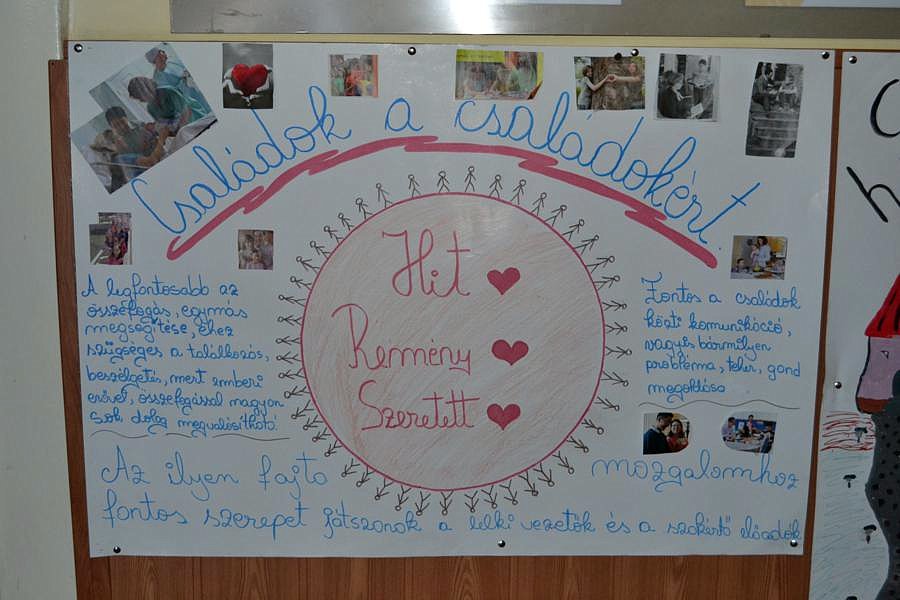 Családok a családokért.
Hit
Remény
Szeretett
A legfontosabb az
összefogás, egymás
megsegítése, ehez
szügséges a találkozás,
beszélgetés, mert emberi
erővel, összefogással nagyon
sok dolog megvalósítható!
Fontos a családok
közti komunikáció,
vagyis bármilyen
probléma, teher, gond
megoldása
Az ilyen fajta mozgalomhoz
fontos szerepet játszanak a lelki vezetők és a szakértő előadók